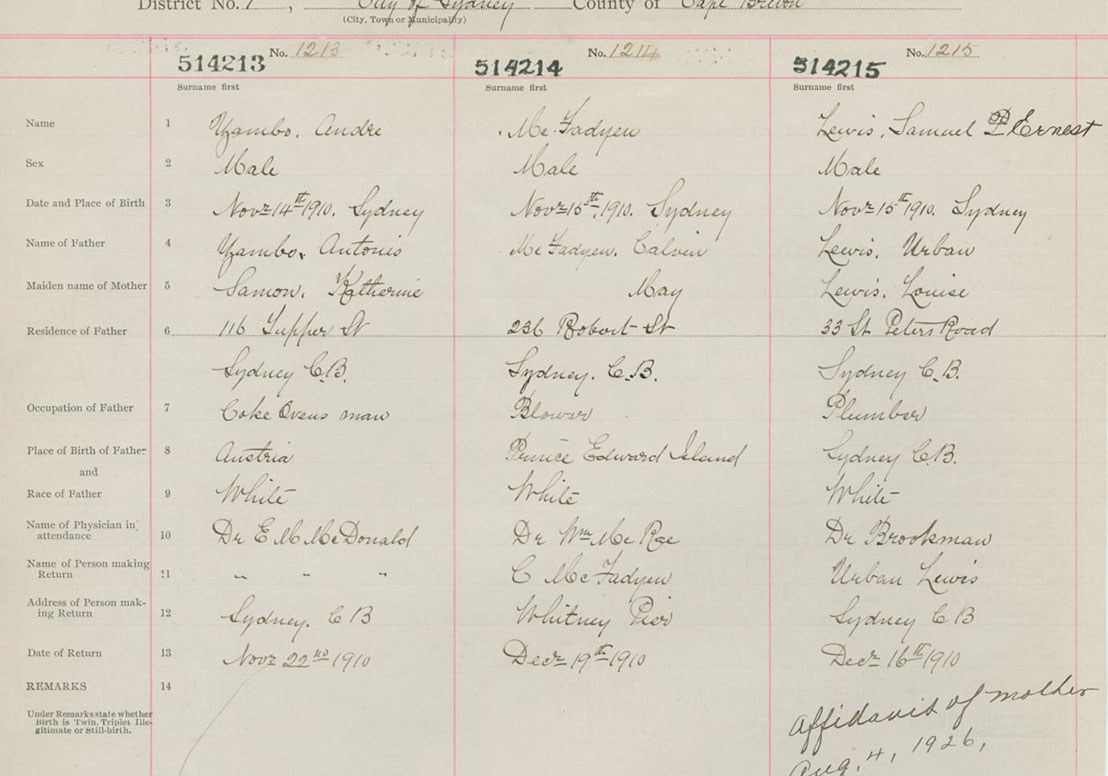 District No. 7, City of Sydney County of Cape Breton
(City, Town or Municipality)
No. 1213 No. 1214 No. 1215
514213 514214 514215
Surname first Surname first Surname first
Name 1 Yambo, Andre McFadyen Lewis, Samuel P Ernest
Sex 2 Male Male Male
Date and Place of Birth 3 Novr 14th 1910. Sydney Novr 15th, 1910. Sydney Novr 15th 1910. Sydney
Name of Father 4 Yambo, Antonis McFadyen, Calvin Lewis, Urban
Maiden name of Mother 5 Samon, Katherine May Lewis, Louise
Residence of Father 6 116 Tupper St 236 Robert St 33 St Peters Road
Sydney C.B. Sydney. C.B. Sydney C.B.
Occupation of Father 7 Coke Ovens man Blower Plumber
Place of Birth of Father 8 Austria Prince Edward Island Sydney C.B.
and
Race of Father 9 White White White
Name of Physician in attendance 10 Dr E M McDonald Dr Wm McRae Dr Brookman
Name of Person making Return 11 " " " C McFadyen Urban Lewis
Address of Person making Return 12 Sydney. C B Whitney Pier Sydney C B
Date of Return 13 Novr 22nd 1910 Decr 19th 1910 Decr 16th 1910
REMARKS 14
Under Remarks state whether
Birth is Twin, Triplet, Ille-
gitimate or Still-birth.
Affidavit of mother
Aug. 4, 1926,